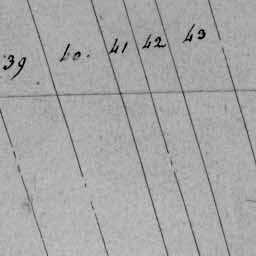 39 40. 41 42 43